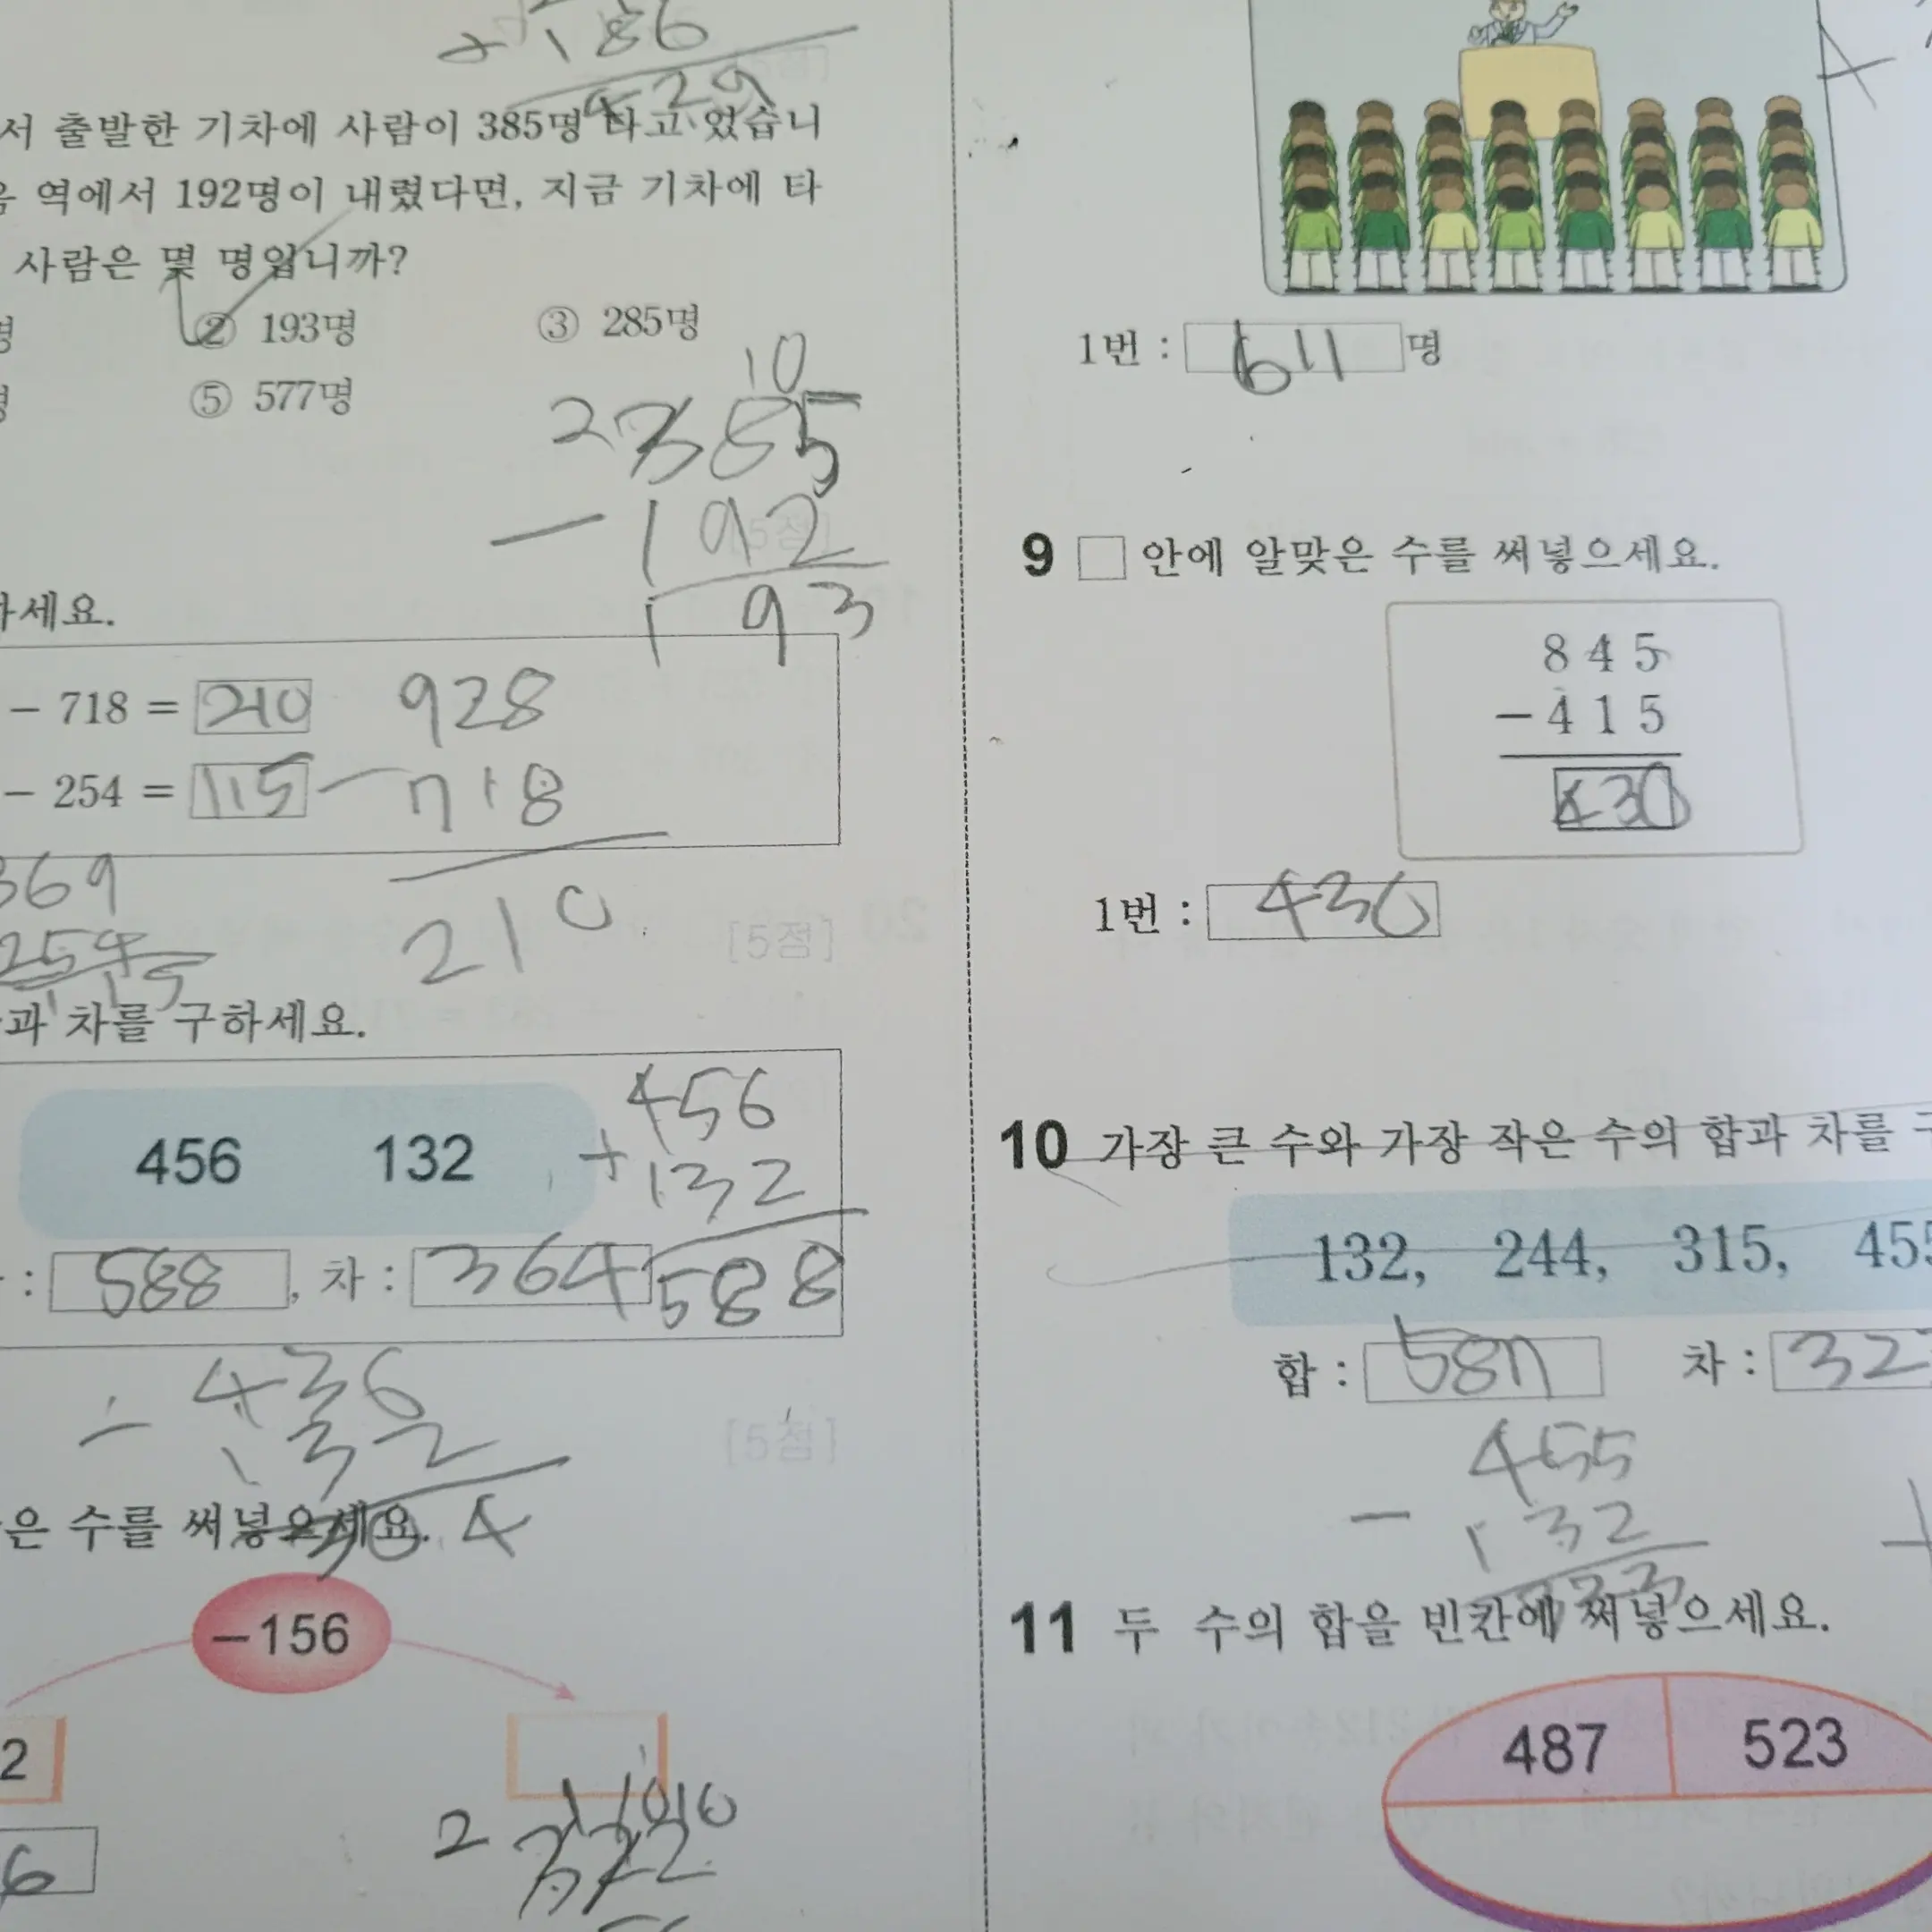 + 186
429
서 출발한 기차에 사람이 385명 타고 있습니
음 역에서 192명이 내렸다면, 지금 기차에 타
사람은 몇 명입니까?
명 ② 193명 ③ 285명
명 ⑤ 577명
10
2 385
- 192
193
하세요.
- 718 = 210
- 254 = 115
928
- 718
210
369
254
115
과 차를 구하세요.
456 132
456
+ 132
588
: 588 , 차 : 364
- 436
132
304
은 수를 써넣으세요.
-156
2
6
2 1 10 10
322
[5점]
[5점]
1번 : 611 명
9 □ 안에 알맞은 수를 써넣으세요.
845
- 415
430
1번 : 430
10 가장 큰 수와 가장 작은 수의 합과 차를 구
132, 244, 315, 455
합 : 587 차 : 32
455
- 132
323
+
11 두 수의 합을 빈칸에 써넣으세요.
487 523